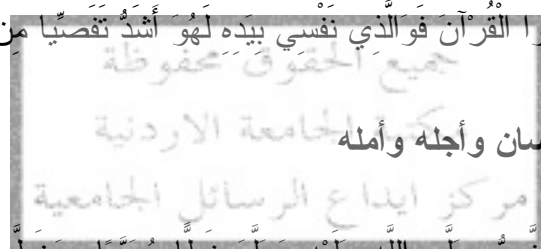 الْقُرْآنَ فَوَالَّذِي نَفْسِي بِيَدِهِ لَهُوَ أَشَدُّ تَفَصِّيًا مِن
جميع الحقوق محفوظة
الجامعة الاردنية
سان وأجله وأمله
مركز ايداع الرسائل الجامعية